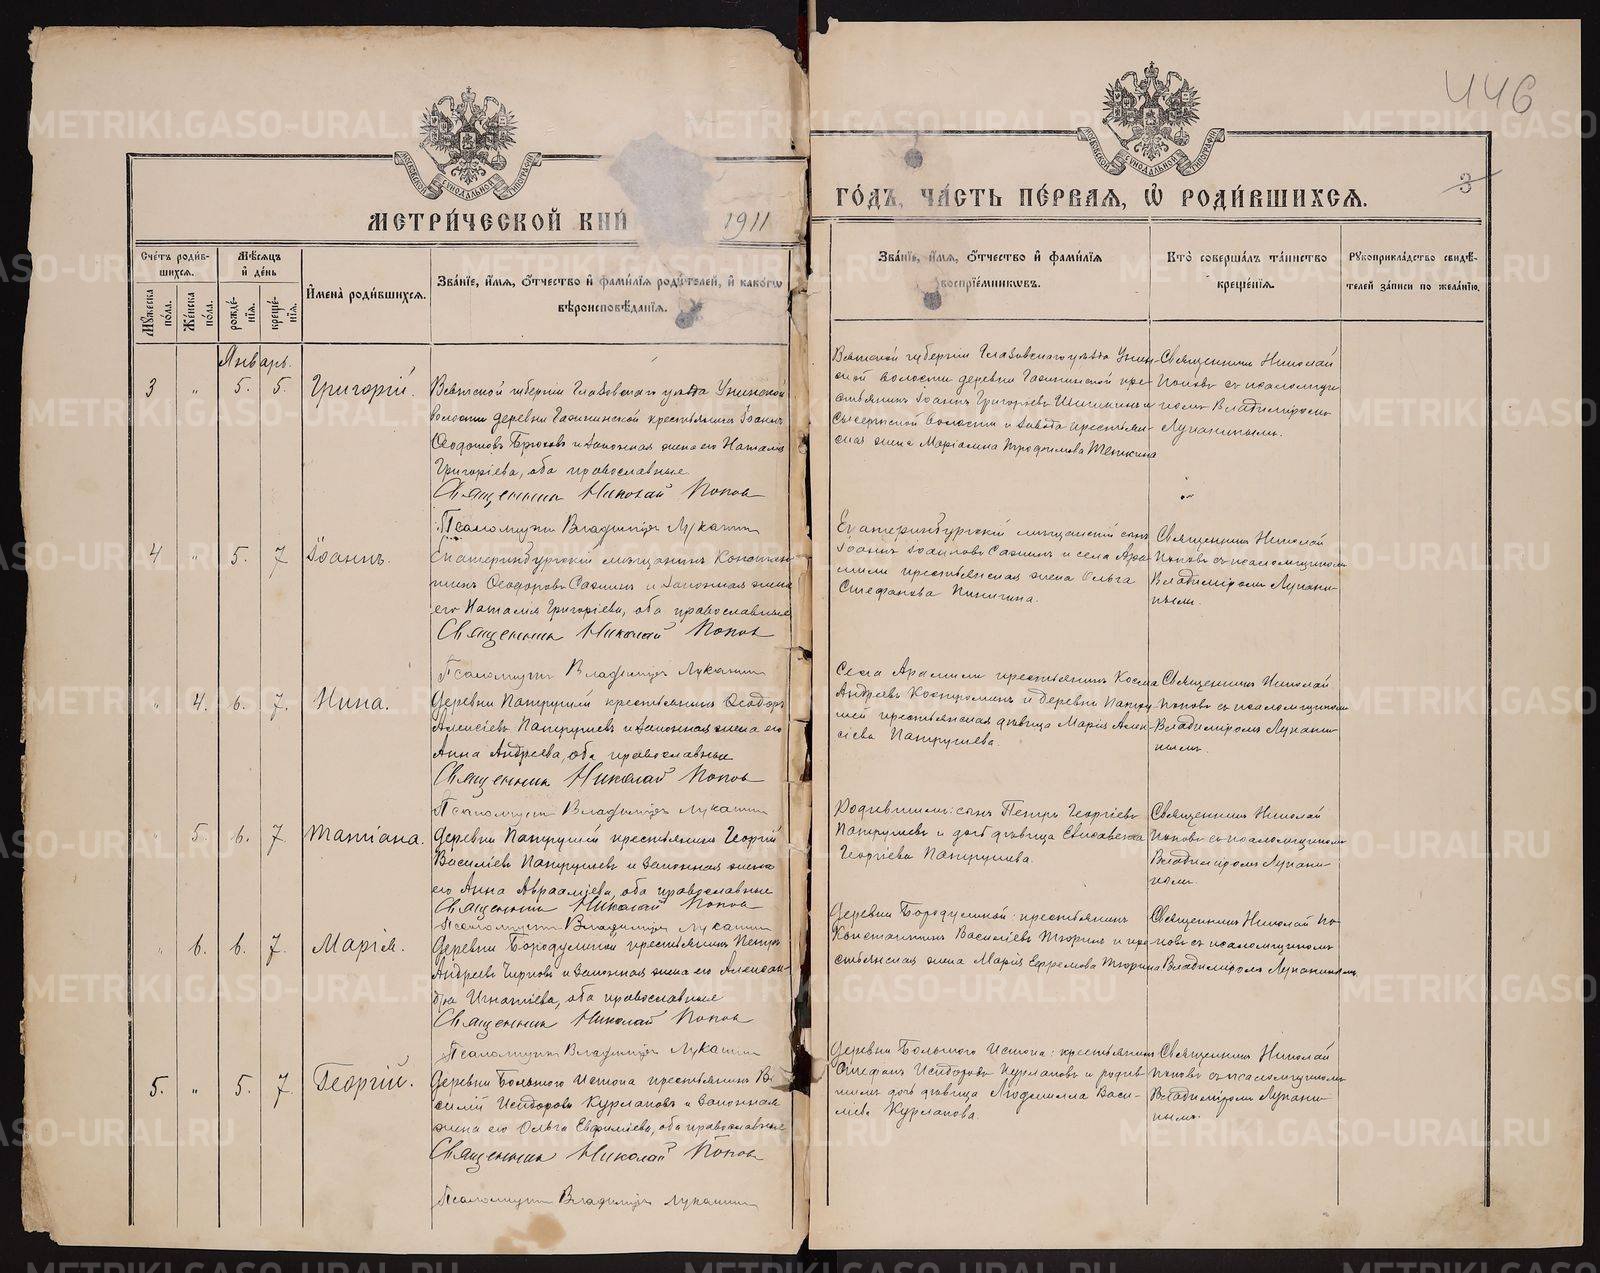 446
3
МОСКОВСКОЙ СѴНОДАЛЬНОЙ ТИПОГРАФІИ
МОСКОВСКОЙ СѴНОДАЛЬНОЙ ТИПОГРАФІИ
МЕТРИ́ЧЕСКОЙ КНИ́ 1911
ГО́ДЪ, ЧА́СТЬ ПЕ́РВАЯ, Ѿ РОДИ́ВШИХСЯ.
Сче́тъ роди́в-
шихся.
Мѣ́сяцъ
и҆ де́нь
Мꙋ́жеска
по́ла.
Же́нска
по́ла.
рожде́-
нїѧ.
креще́-
нїѧ.
И҆мена̀ роди́вшихся.
Зва́нїе, и҆́мя, ѻ҆́тчество и҆ фами́лїѧ роди́телей, и҆ како́гѡ
вѣроисповѣ́данїѧ.
Зва́нїе, и҆́мя, ѻ҆́тчество и҆ фами́лїѧ
воспрїе́мникѡвъ.
Кто̀ соверша́лъ та́инство
креще́нїѧ.
Рꙋкоприкла́дство свидѣ́-
телей за́писи по жела́нїю.
Январь.
3 " 5. 5. Григорій.
Вятской губерніи Глазовскаго уѣзда Унинской
волости деревни крестьянинъ Іоаннъ
Ѳеодотовъ и законная жена его Наталія
Григоріева, оба православные
Священникъ Николай Попов
Псаломщик Владимир Луканин
Вятской губерніи Глазовскаго уѣзда Унин-
ской волости деревни кре-
стьянинъ Іоаннъ Григоріевъ и
Сысертской волости и завода крестьян-
ская жена Маріамна Трофимова
Священникъ Николай
Поповъ съ псаломщи-
комъ Владиміромъ
Луканинымъ.
4 " 5. 7 Іоаннъ.
Екатеринбургскій мѣщанинъ Констан-
тинъ Ѳеодоровъ и законная жена
его Наталія Григоріева, оба православные
Священник Николай Попов
Псаломщик Владимир Луканин
Екатеринбургскій мѣщанскій сынъ
Іоаннъ и села Ара-
мили крестьянская жена Ольга
Стефанова Пинигина.
Священникъ Николай
Поповъ съ псаломщикомъ
Владиміромъ Лукани-
нымъ.
" 4. 6. 7. Нина.
Деревни Патрушей крестьянинъ Ѳеодоръ
Алексіевъ Патрушевъ и законная жена его
Анна Андреева, оба православные
Священник Николай Попов
Псаломщик Владимир Луканин
Села Арамили крестьянинъ Косма
Андреевъ Костромин и деревни Патру-
шей крестьянская дѣвица Марія Алек-
сіева Патрушева.
Священникъ Николай
Поповъ съ псаломщикомъ
Владиміромъ Лукани-
нымъ.
" 5. 6. 7 Татіана.
Деревни Патрушей крестьянинъ Георгій
Василіевъ Патрушевъ и законная жена
его Анна Авраамiева, оба православные
Священник Николай Попов
Псаломщик Владимир Луканин
Родившимъ: сынъ Петръ Георгіевъ
Патрушевъ и дочь дѣвица Елисавета
Георгіева Патрушева.
Священникъ Николай
Поповъ съ псаломщикомъ
Владиміромъ Лукани-
нымъ.
" 6. 6. 7. Марія.
Деревни Бородулиной крестьянинъ Петръ
Андреевъ Черновъ и законная жена его Алексан-
дра Игнатіева, оба православные
Священник Николай Попов
Псаломщик Владимир Луканин
Деревни Бородулиной: крестьянинъ
Константинъ Василіевъ Тюринъ и кре-
стьянская жена Марія Ефремова Тюрина
Священникъ Николай По-
повъ съ псаломщикомъ
Владиміромъ Луканинымъ
5. " 5. 7. Георгій.
Деревни Большого Истока крестьянинъ Ва-
силій Исидоровъ Курлаповъ и законная
жена его Ольга Евфиміева, оба православные
Священник Николай Попов
Псаломщик Владимир Луканин
Деревни Большого Истока: крестьянинъ
Стефанъ Исидоровъ Курлаповъ и родив-
шимъ дочь дѣвица Людмилла Васи-
ліева Курлапова.
Священникъ Николай
Поповъ съ псаломщикомъ
Владиміромъ Лукани-
нымъ.
METRIKI.GASO-URAL.RU